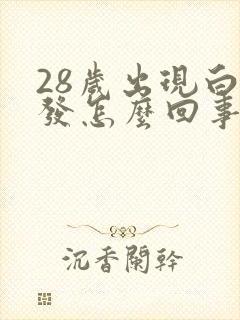 28歲出現白
發怎麼回事
沉香闌幹